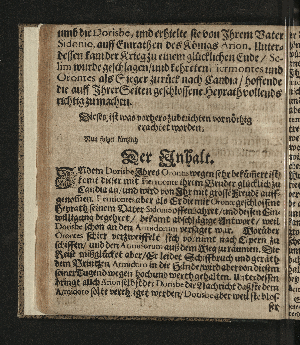 umb die Dorisbe, und erhielte sie von Ihrem Vater
Sidonio, auf Einrathen des Königs Arion. Unter-
dessen kam der Krieg zu einem glücklichen Ende / Se-
lim wurde geschlagen / und kehreten Fiermontes und
Orontes als Sieger zurück nach Candia / hoffende
die auff Ihrer Seiten geschlossene Heyrath vollends
richtig zu machen.
Dieses ist was vorhero zu berichten vornöthig
erachtet worden.
Nun folget kürtzlich
Der Inhalt.
Indem Dorisbe Ihres Orontes wegen sehr bekümmert ist
kömt dieser mit Fiermonte ihrem Bruder glücklich zu
Candia an, und wird von Ihr mit größter Freude auff-
genommen.
Heyrath seinem Vater Sidonio offenbahret / und dessen Ein-
willigung begehret / bekomt abschlägige Antwort / weil
Dorisbe schon an den Armidoro versaget war. Worüber
Orontes schier verzweiffelt sich vornimt nach Cypern zu
schiffen / und den Armidorum aus dem Weg zu räumen. Die
Reise mißglücket aber / Er leidet Schiffbruch und geräth
dem Printzen Armidoro in die Hände / wird aber von diesem
seiner Tugend wegen hoch und werth gehalten. Unterdessen
bringt auch Arion selbst der Dorisbe die Nachricht daß sie dem
Armidoro solte verehliget werden / Dorisbe aber weil sie blos-
ser